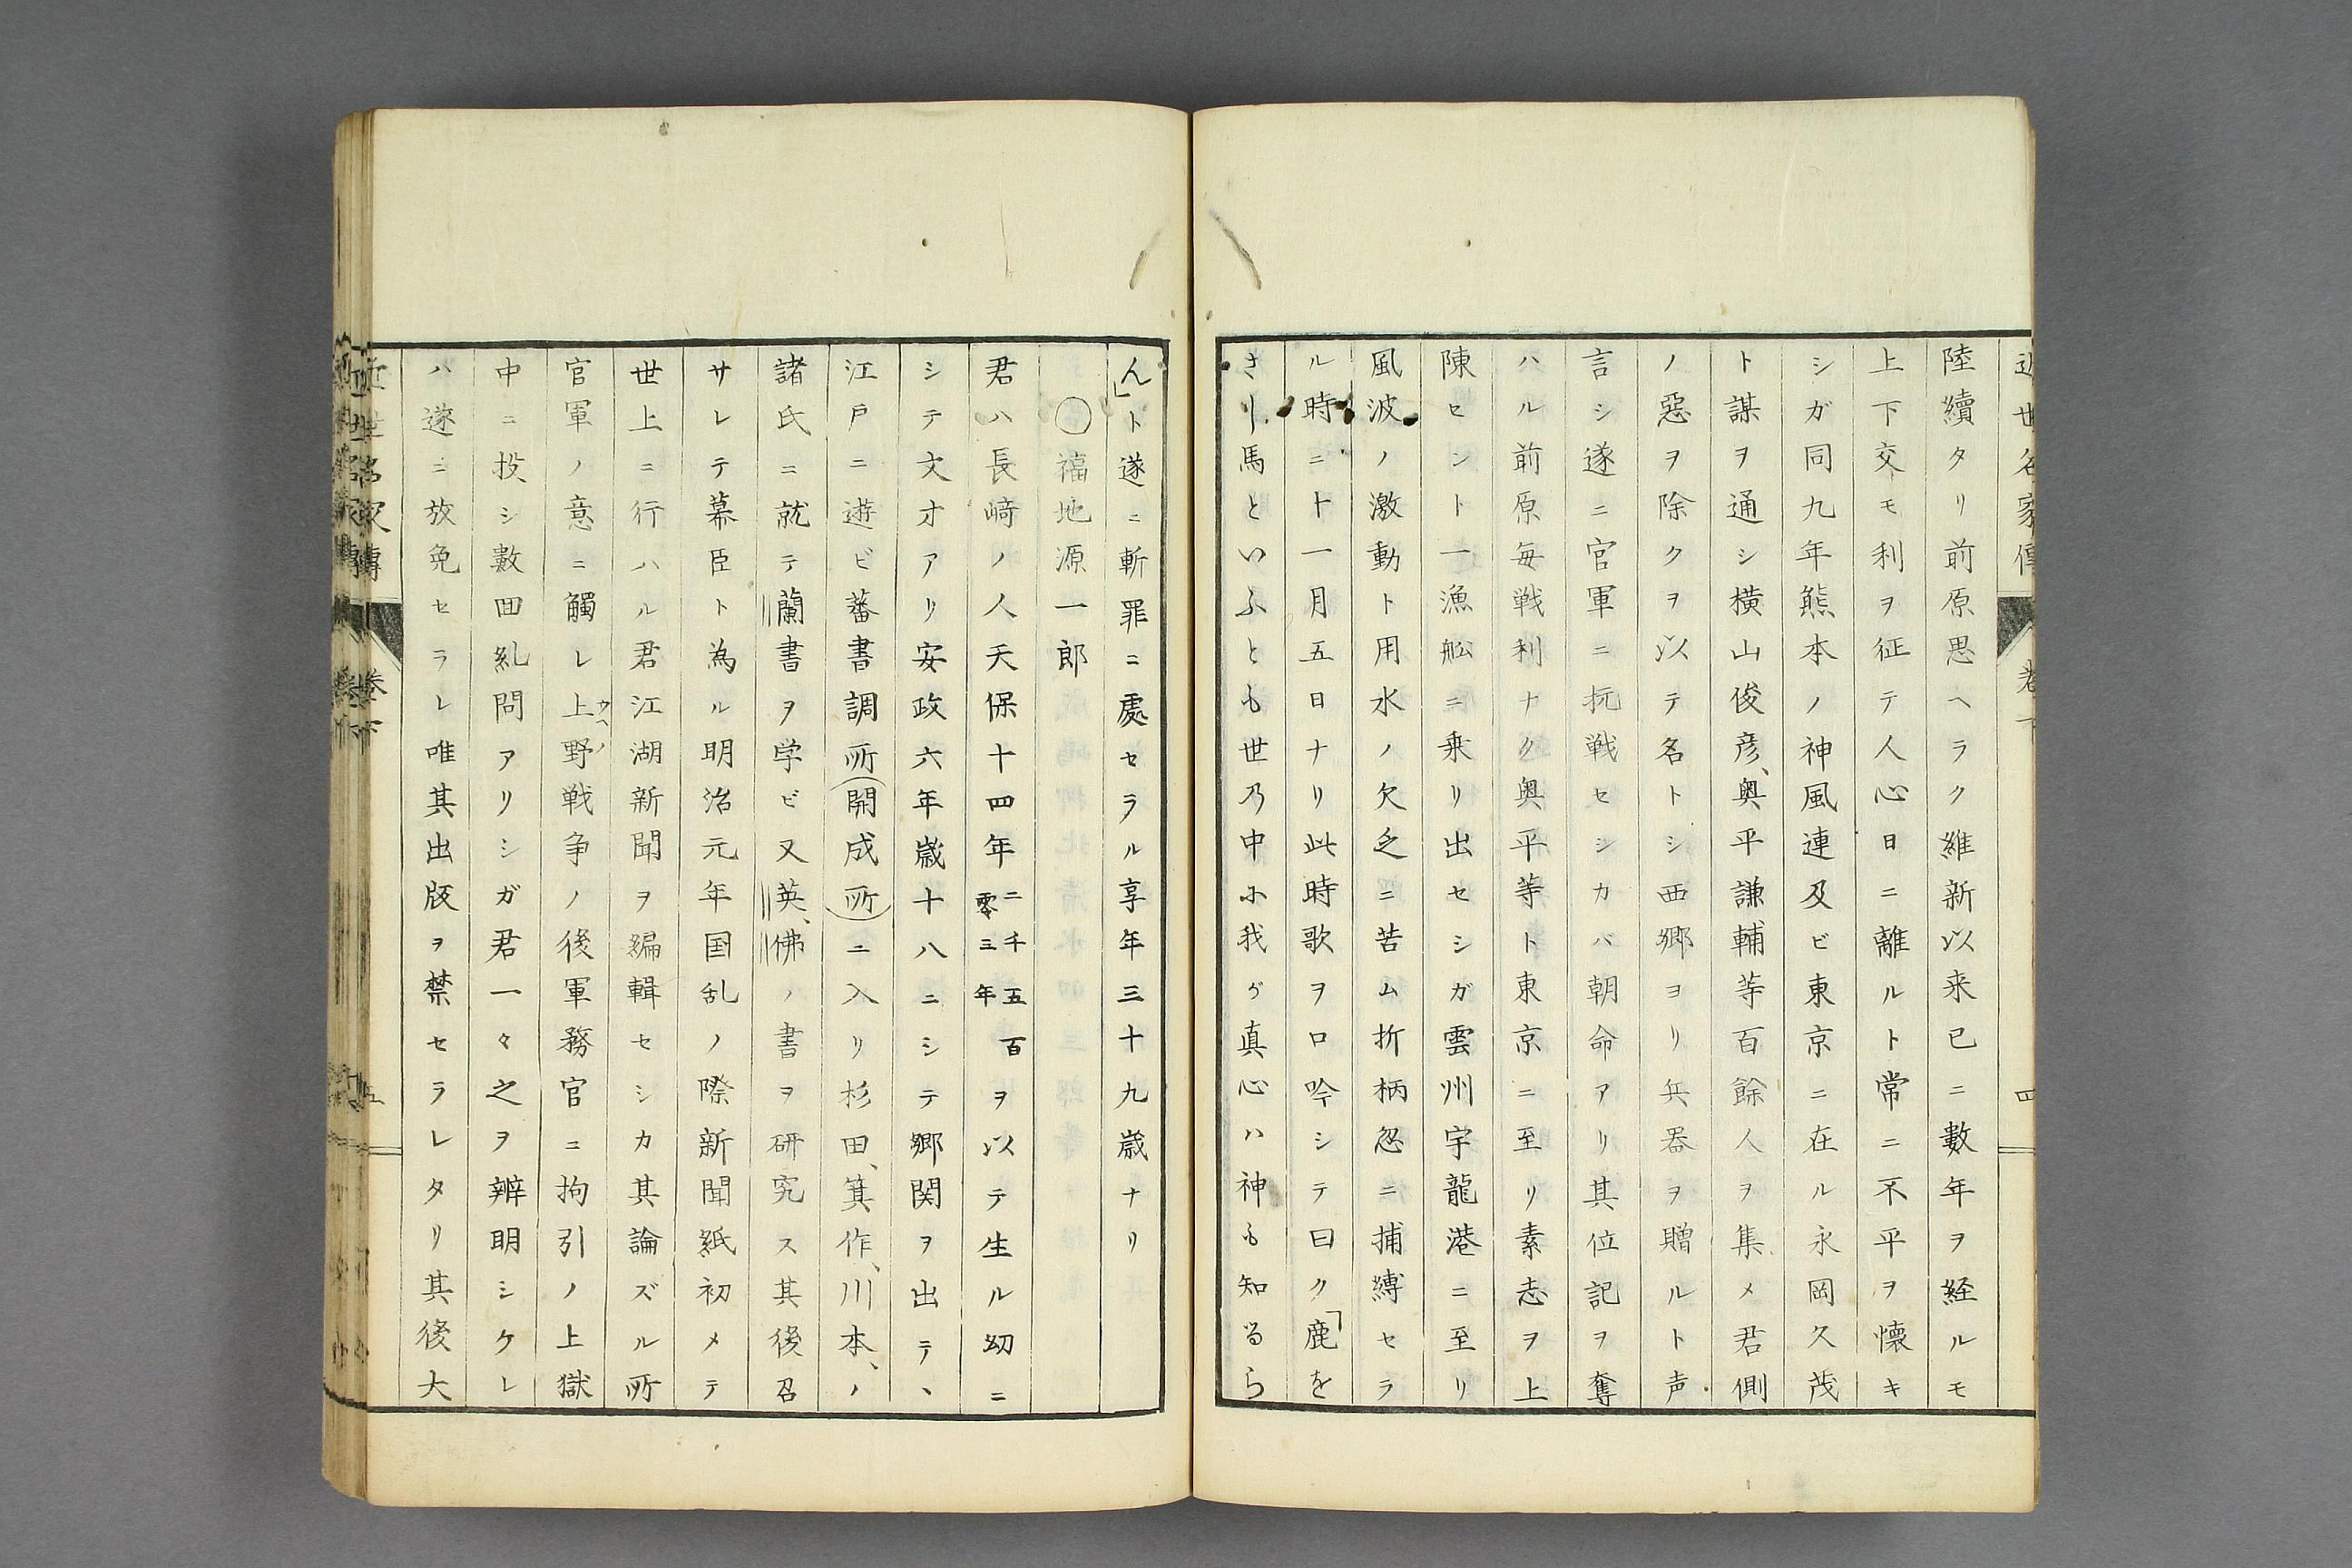 近世名家傳 卷下 四
陸續タリ前原思ヘラク維新以来已ニ數年ヲ経ルモ
上下交モ利ヲ征テ人心日ニ離ルト常ニ不平ヲ懐キ
シガ同九年熊本ノ神風連及ビ東京ニ在ル永岡久茂
ト謀ヲ通シ横山俊彦、奥平謙輔等百餘人ヲ集メ君側
ノ惡ヲ除クヲ以テ名トシ西郷ヨリ兵器ヲ贈ルト声
言シ遂ニ官軍ニ抗戦セシカバ朝命アリ其位記ヲ奪
ハル前原毎戦利ナク奥平等ト東京ニ至リ素志ヲ上
陳セント一漁舩ニ乗リ出セシガ雲州宇龍港ニ至リ
風波ノ激動ト用水ノ欠乏ニ苦ム折柄忽ニ捕縛セラ
ル時ニ十一月五日ナリ此時歌ヲ口吟シテ曰ク「鹿を
さり馬といふとも世乃中小我ガ真心ハ神も知るら
ん」ト遂ニ斬罪ニ處セラル享年三十九歳ナリ
○福地源一郎
君ハ長﨑ノ人天保十四年二千五百零三年ヲ以テ生ル幼ニ
シテ文才アリ安政六年歳十八ニシテ郷関ヲ出テ、
江戸ニ遊ビ蕃書調所(開成所)ニ入リ杉田、箕作、川本、ノ
諸氏ニ就テ蘭書ヲ学ビ又英、佛ノ書ヲ研究ス其後召
サレテ幕臣ト為ル明治元年国乱ノ際新聞紙初メテ
世上ニ行ハル君江湖新聞ヲ編輯セシカ其論ズル所
官軍ノ意ニ觸レ上野戦争ノ後軍務官ニ拘引ノ上獄
中ニ投シ數回糺問アリシガ君一々之ヲ辨明シケレ
ハ遂ニ放免セラレ唯其出版ヲ禁セラレタリ其後大
近世名家傳 卷下 五